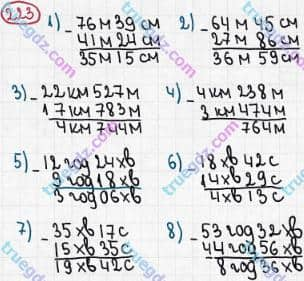 223
1) - 76 м 39 см
41 м 24 см
35 м 15 см
2) - 64 м 45 см
27 м 86 см
36 м 59 см
3) - 22 км 527 м
17 км 783 м
4 км 744 м
4) - 4 км 238 м
3 км 474 м
764 м
5) - 12 год 24 хв
9 год 18 хв
3 год 06 хв
6) - 18 хв 42 с
14 хв 29 с
4 хв 13 с
7) - 35 хв 17 с
15 хв 35 с
19 хв 42 с
8) - 53 год 32 хв
44 год 56 хв
8 год 36 хв
truegdz.com